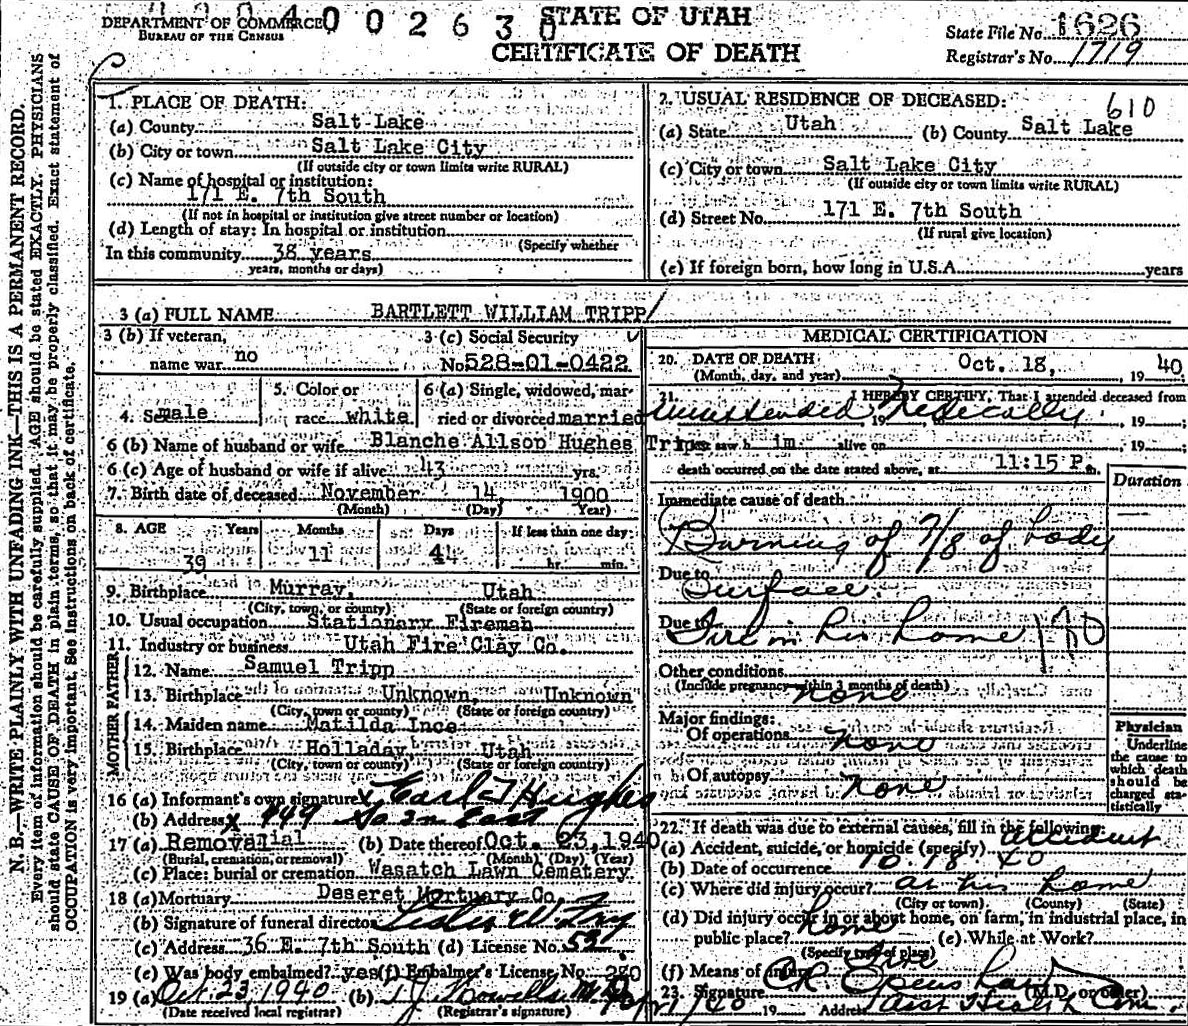 DEPARTMENT OF COMMERCE
BUREAU OF THE CENSUS
400263
STATE OF UTAH
CERTIFICATE OF DEATH
State File No. 1626
Registrar's No. 1719
N. B.—WRITE PLAINLY WITH UNFADING INK—THIS IS A PERMANENT RECORD.
Every item of information should be carefully supplied. AGE should be stated EXACTLY. PHYSICIANS
should state CAUSE OF DEATH in plain terms, so that it may be properly classified. Exact statement of
OCCUPATION is very important. See instructions on back of certificate.
1. PLACE OF DEATH:
(a) County Salt Lake
(b) City or town Salt Lake City
(If outside city or town limits write RURAL)
(c) Name of hospital or institution:
171 E. 7th South
(If not in hospital or institution give street number or location)
(d) Length of stay: In hospital or institution
(Specify whether
In this community 38 years
years, months or days)
2. USUAL RESIDENCE OF DECEASED: 610
(a) State Utah (b) County Salt Lake
(c) City or town Salt Lake City
(If outside city or town limits write RURAL)
(d) Street No. 171 E. 7th South
(If rural give location)
(e) If foreign born, how long in U.S.A. years
3 (a) FULL NAME BARTLETT WILLIAM TRIPP
3 (b) If veteran, name war no
3 (c) Social Security No. 528-01-0422
4. Sex male
5. Color or race white
6 (a) Single, widowed, married or divorced married
6 (b) Name of husband or wife Blanche Allsop Hughes Tripp
6 (c) Age of husband or wife if alive 43 yrs.
7. Birth date of deceased November 14, 1900
(Month) (Day) Year)
8. AGE Years Months Days If less than one day
39 11 4 hr. min.
9. Birthplace Murray, Utah
(City, town, or county) (State or foreign country)
10. Usual occupation Stationary Fireman
11. Industry or business Utah Fire Clay Co.
FATHER
12. Name Samuel Tripp
13. Birthplace Unknown, Unknown
(City, town or county) (State or foreign country)
MOTHER
14. Maiden name Matilda Ince
15. Birthplace Holladay, Utah
(City, town or county) (State or foreign country)
16 (a) Informant's own signature x Earl J Hughes
(b) Address x 449 So 2n East
17 (a) Removal (b) Date thereof Oct. 23, 1940
(Burial, cremation, or removal) (Month) (Day) (Year)
(c) Place: burial or cremation Wasatch Lawn Cemetery
18 (a) Mortuary Deseret Mortuary Co.
(b) Signature of funeral director
(c) Address 36 E. 7th South (d) License No. 52
(e) Was body embalmed? yes (f) Embalmer's License No. 280
19 (a) Oct. 23, 1940 (b)
(Date received local registrar) (Registrar's signature)
MEDICAL CERTIFICATION
20. DATE OF DEATH Oct. 18, 1940
(Month, day, and year)
21. I HEREBY CERTIFY, That I attended deceased from
Unattended Medically. 19 ;
saw h im alive on 19 ;
death occurred on the date stated above, at 11:15 P m.
Duration
Immediate cause of death
Burning of 7/8 of body
Due to Surface.
Due to Fire in his home
Other conditions none
(Include pregnancy within 3 months of death)
Major findings:
Of operations none
Of autopsy none
Physician
Underline
the cause to
which death
should be
charged sta-
tistically
22. If death was due to external causes, fill in the following:
(a) Accident, suicide, or homicide (specify) accident
(b) Date of occurrence 10-18-40
(c) Where did injury occur? at his home
(City or town) (County) (State)
(d) Did injury occur in or about home, on farm, in industrial place, in
public place? home (e) While at Work?
(Specify type of place)
(f) Means of injury fire
23. Signature (M.D. or other)
19 Address